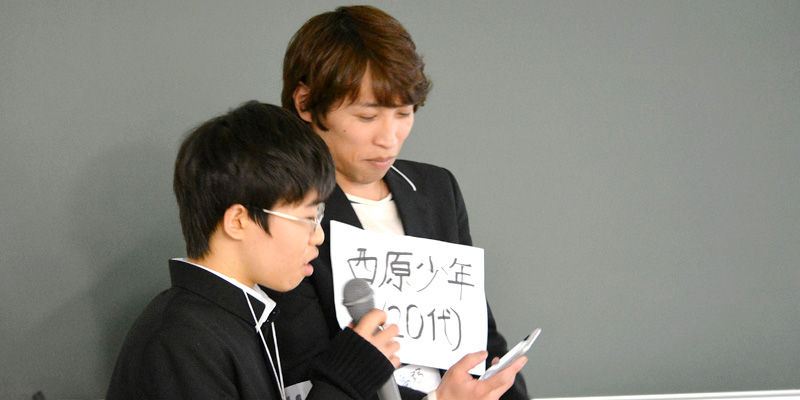 西原少年
(20代)